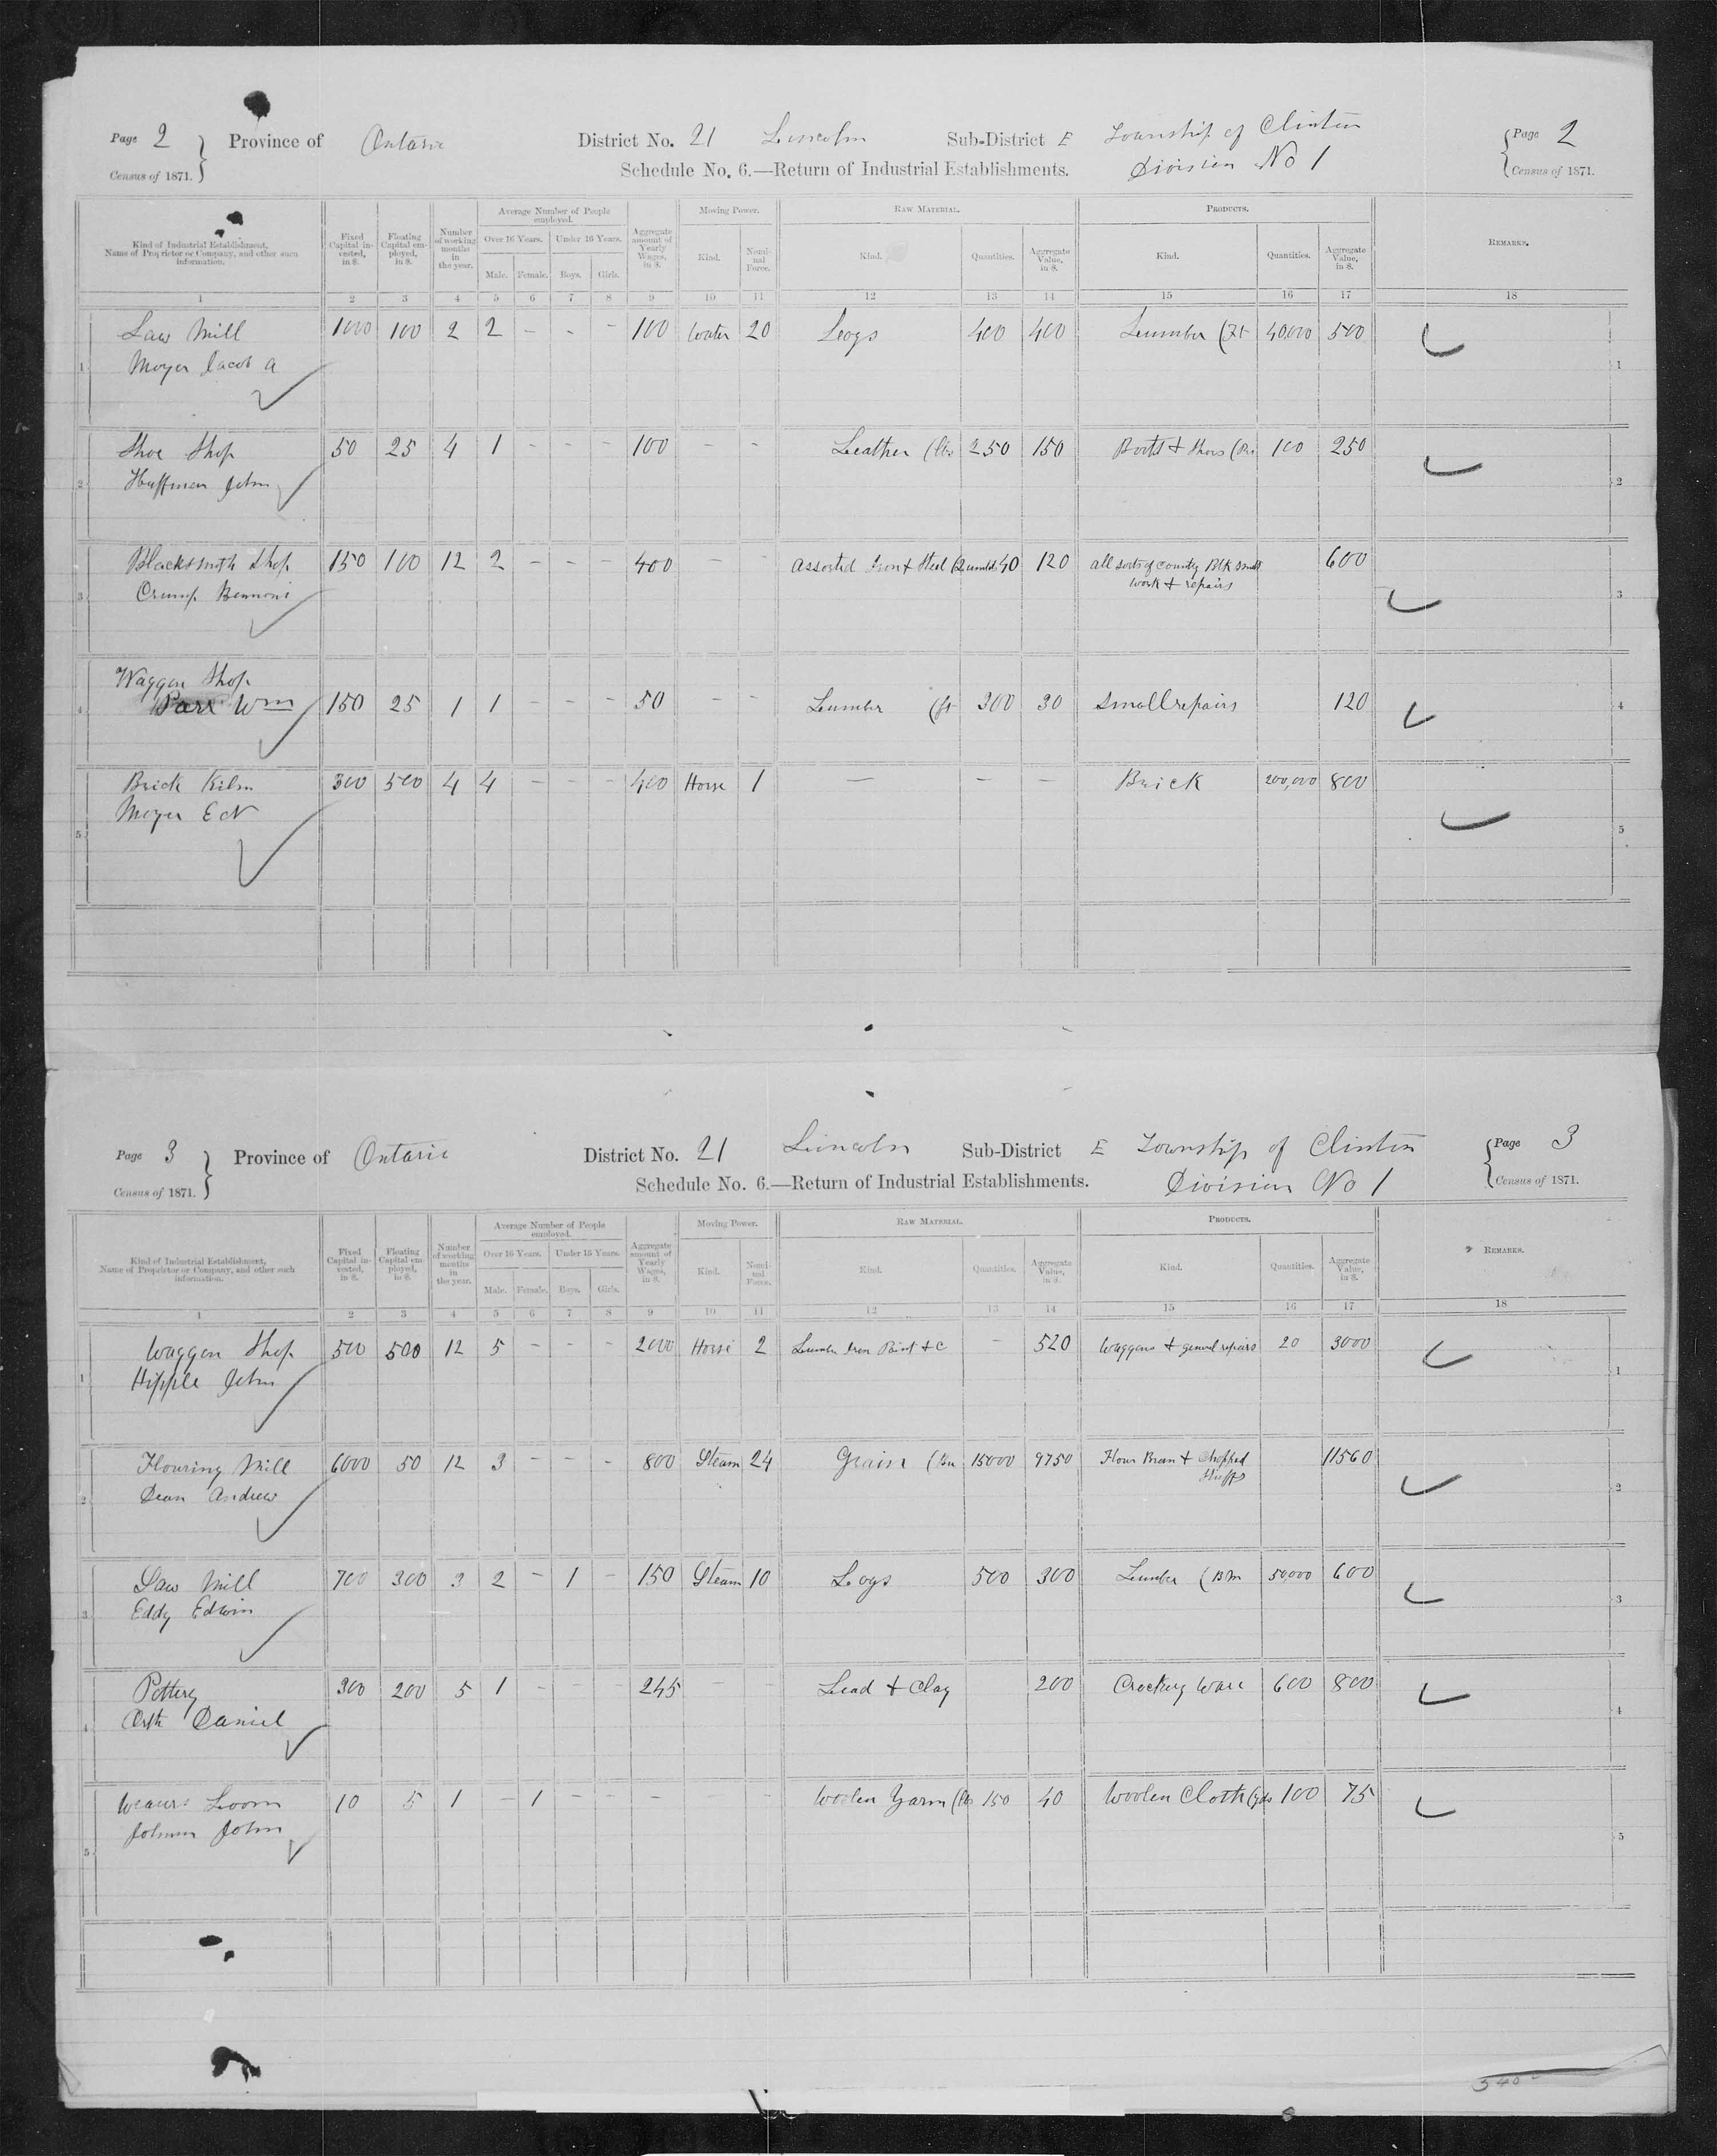 Page 2 } Province of Ontario District No. 21 Lincoln Sub-District E Township of Clinton { Page 2
Census of 1871. Schedule No. 6.—Return of Industrial Establishments. Division No 1 Census of 1871.
Kind of Industrial Establishment, Name of Proprietor or Company, and other such information. Fixed Capital invested, in $. Floating Capital employed, in $. Number of working months in the year. Average Number of People employed. Over 16 Years. Under 16 Years. Male. Female. Boys. Girls. Aggregate amount of Yearly Wages, in $. Moving Power. Kind. Nominal Force. RAW MATERIAL. Kind. Quantities. Aggregate Value, in $. PRODUCTS. Kind. Quantities. Aggregate Value, in $. REMARKS.
1 2 3 4 5 6 7 8 9 10 11 12 13 14 15 16 17 18
Saw Mill 1000 100 2 2 - - - 100 Water 20 Loogs 400 400 Lumber (Ft 40,000 500
1 Moyer Jacob A 1
Shoe Shop 50 25 4 1 - - - 100 - - Leather (lbs 250 150 Boots + Shoes (Prs 100 250
2 Huffman John 2
Blacksmith Shop 150 100 12 2 - - - 400 - - Assorted Iron + Steel 40 120 all sorts of country Blk Smith 600
3 Crump Bennoni work + repairs 3
Waggon Shop
4 Parr Wm 150 25 1 1 - - - 50 - - Lumber (ft 300 30 small repairs 120 4
Brick Kiln 300 500 4 4 - - - 400 Horse 1 - - - Brick 200,000 800
5 Moyer E N 5
Page 3 } Province of Ontario District No. 21 Lincoln Sub-District E Township of Clinton { Page 3
Census of 1871. Schedule No. 6.—Return of Industrial Establishments. Division No 1 Census of 1871.
Kind of Industrial Establishment, Name of Proprietor or Company, and other such information. Fixed Capital invested, in $. Floating Capital employed, in $. Number of working months in the year. Average Number of People employed. Over 16 Years. Under 16 Years. Male. Female. Boys. Girls. Aggregate amount of Yearly Wages, in $. Moving Power. Kind. Nominal Force. RAW MATERIAL. Kind. Quantities. Aggregate Value, in $. PRODUCTS. Kind. Quantities. Aggregate Value, in $. REMARKS.
1 2 3 4 5 6 7 8 9 10 11 12 13 14 15 16 17 18
Waggon Shop 500 500 12 5 - - - 2000 Horse 2 Lumber Iron Paint + c - 520 Waggons + general repairs 20 3000
1 Hipple John 1
Flouring Mill 6000 50 12 3 - - - 800 Steam 24 Grain (Bu 15000 9750 Flour Bran + Chopped 11560
2 Dean Andrew Stuffs 2
Saw Mill 700 300 3 2 - 1 - 150 Steam 10 Loogs 500 300 Lumber (BM 50,000 600
3 Eddy Edwin 3
Pottery 300 200 5 1 - - - 245 - - Lead + Clay 200 Crockery Ware 600 800
4 Orth Daniel 4
Weavers Loom 10 5 1 - 1 - - - - - Woolen Yarn (lbs 150 40 Woolen Cloth (yds 100 75
5 John 5
340